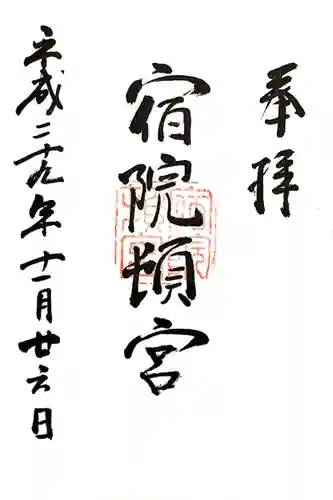 奉拝
宿院頓宮
平成二十九年十一月廿六日